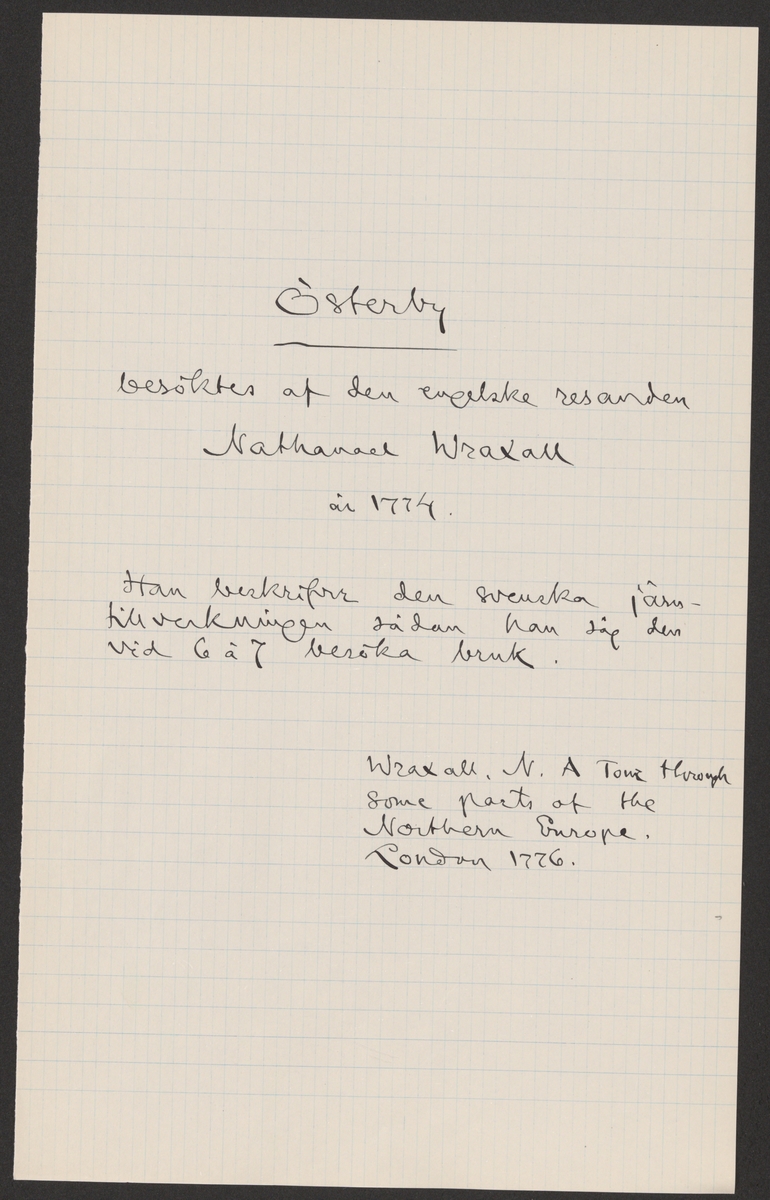 Österby
besöktes af den engelske resanden
Nathanael Wraxall
år 1774.
Han beskrifver den svenska järn-
tillverkningen sådan han såg den
vid 6 à 7 besöka bruk.
Wraxall, N. A Tour through
some parts of the
Northern Europe.
London 1776.